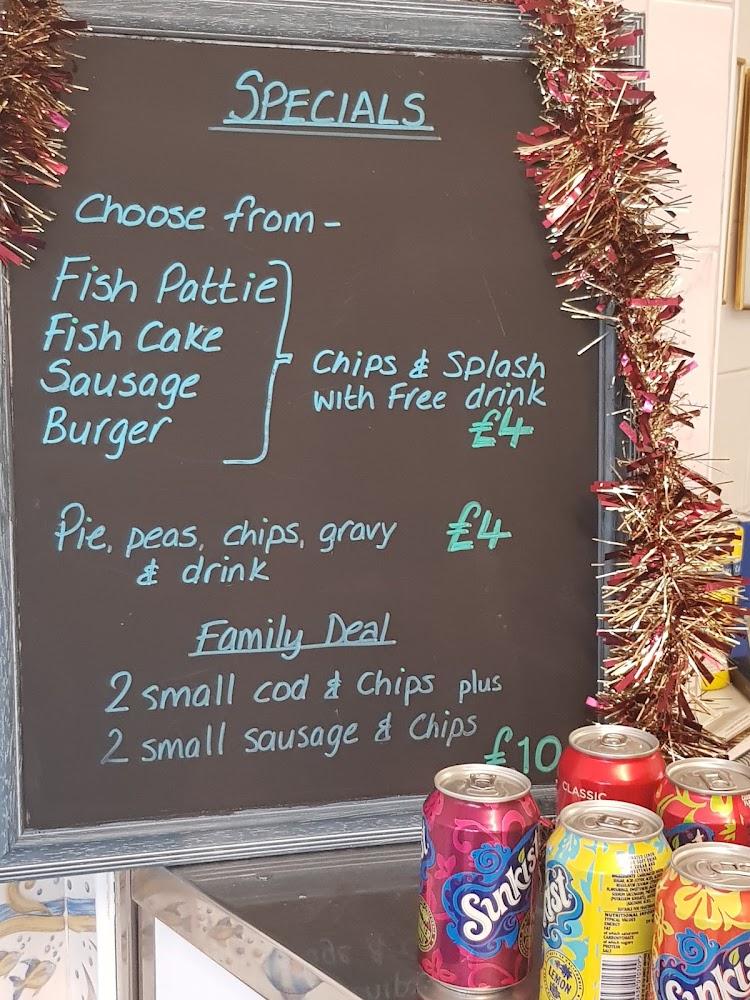 SPECIALS
Choose from -
Fish Pattie
Fish Cake
Sausage
Burger
Chips & Splash
with Free drink
£4
Pie, peas, chips, gravy £4
& drink
Family Deal
2 small cod & Chips plus
2 small sausage & Chips
£10
CLASSIC
Sunkist
LEMON
NUTRITIONAL
ENERGY
FAT
CARBOHYDRATE
PROTEIN
SALT